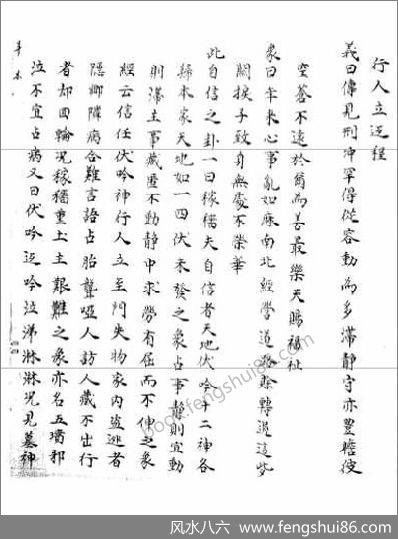 行人立程
義曰傳見刑冲罕得從容動為多滯靜守亦豐
空谷不遠於爾為善最樂天賜福祉
象曰年來心事亂如麻南北經營道路賒轉過這些
關捩子致身無處不榮華
此自信之卦一曰稼穡夫自信者天地伏吟十二神各
歸本家天地如一四伏未發之象占事靜則宜動
則滯主事藏匿不動靜中求勞有屈而不伸之象
經云信任伏吟神行人立至門失物家內盜逃者
隱鄉隣病合難言語占胎聾啞人訪人藏不出行
者却回輪況稼穡重土主艱難之象亦名五墳
泣不宜占病又曰伏吟吟泣涕淋淋況見墓神
book.fengshui86.com
风水八六 www.fengshui86.com